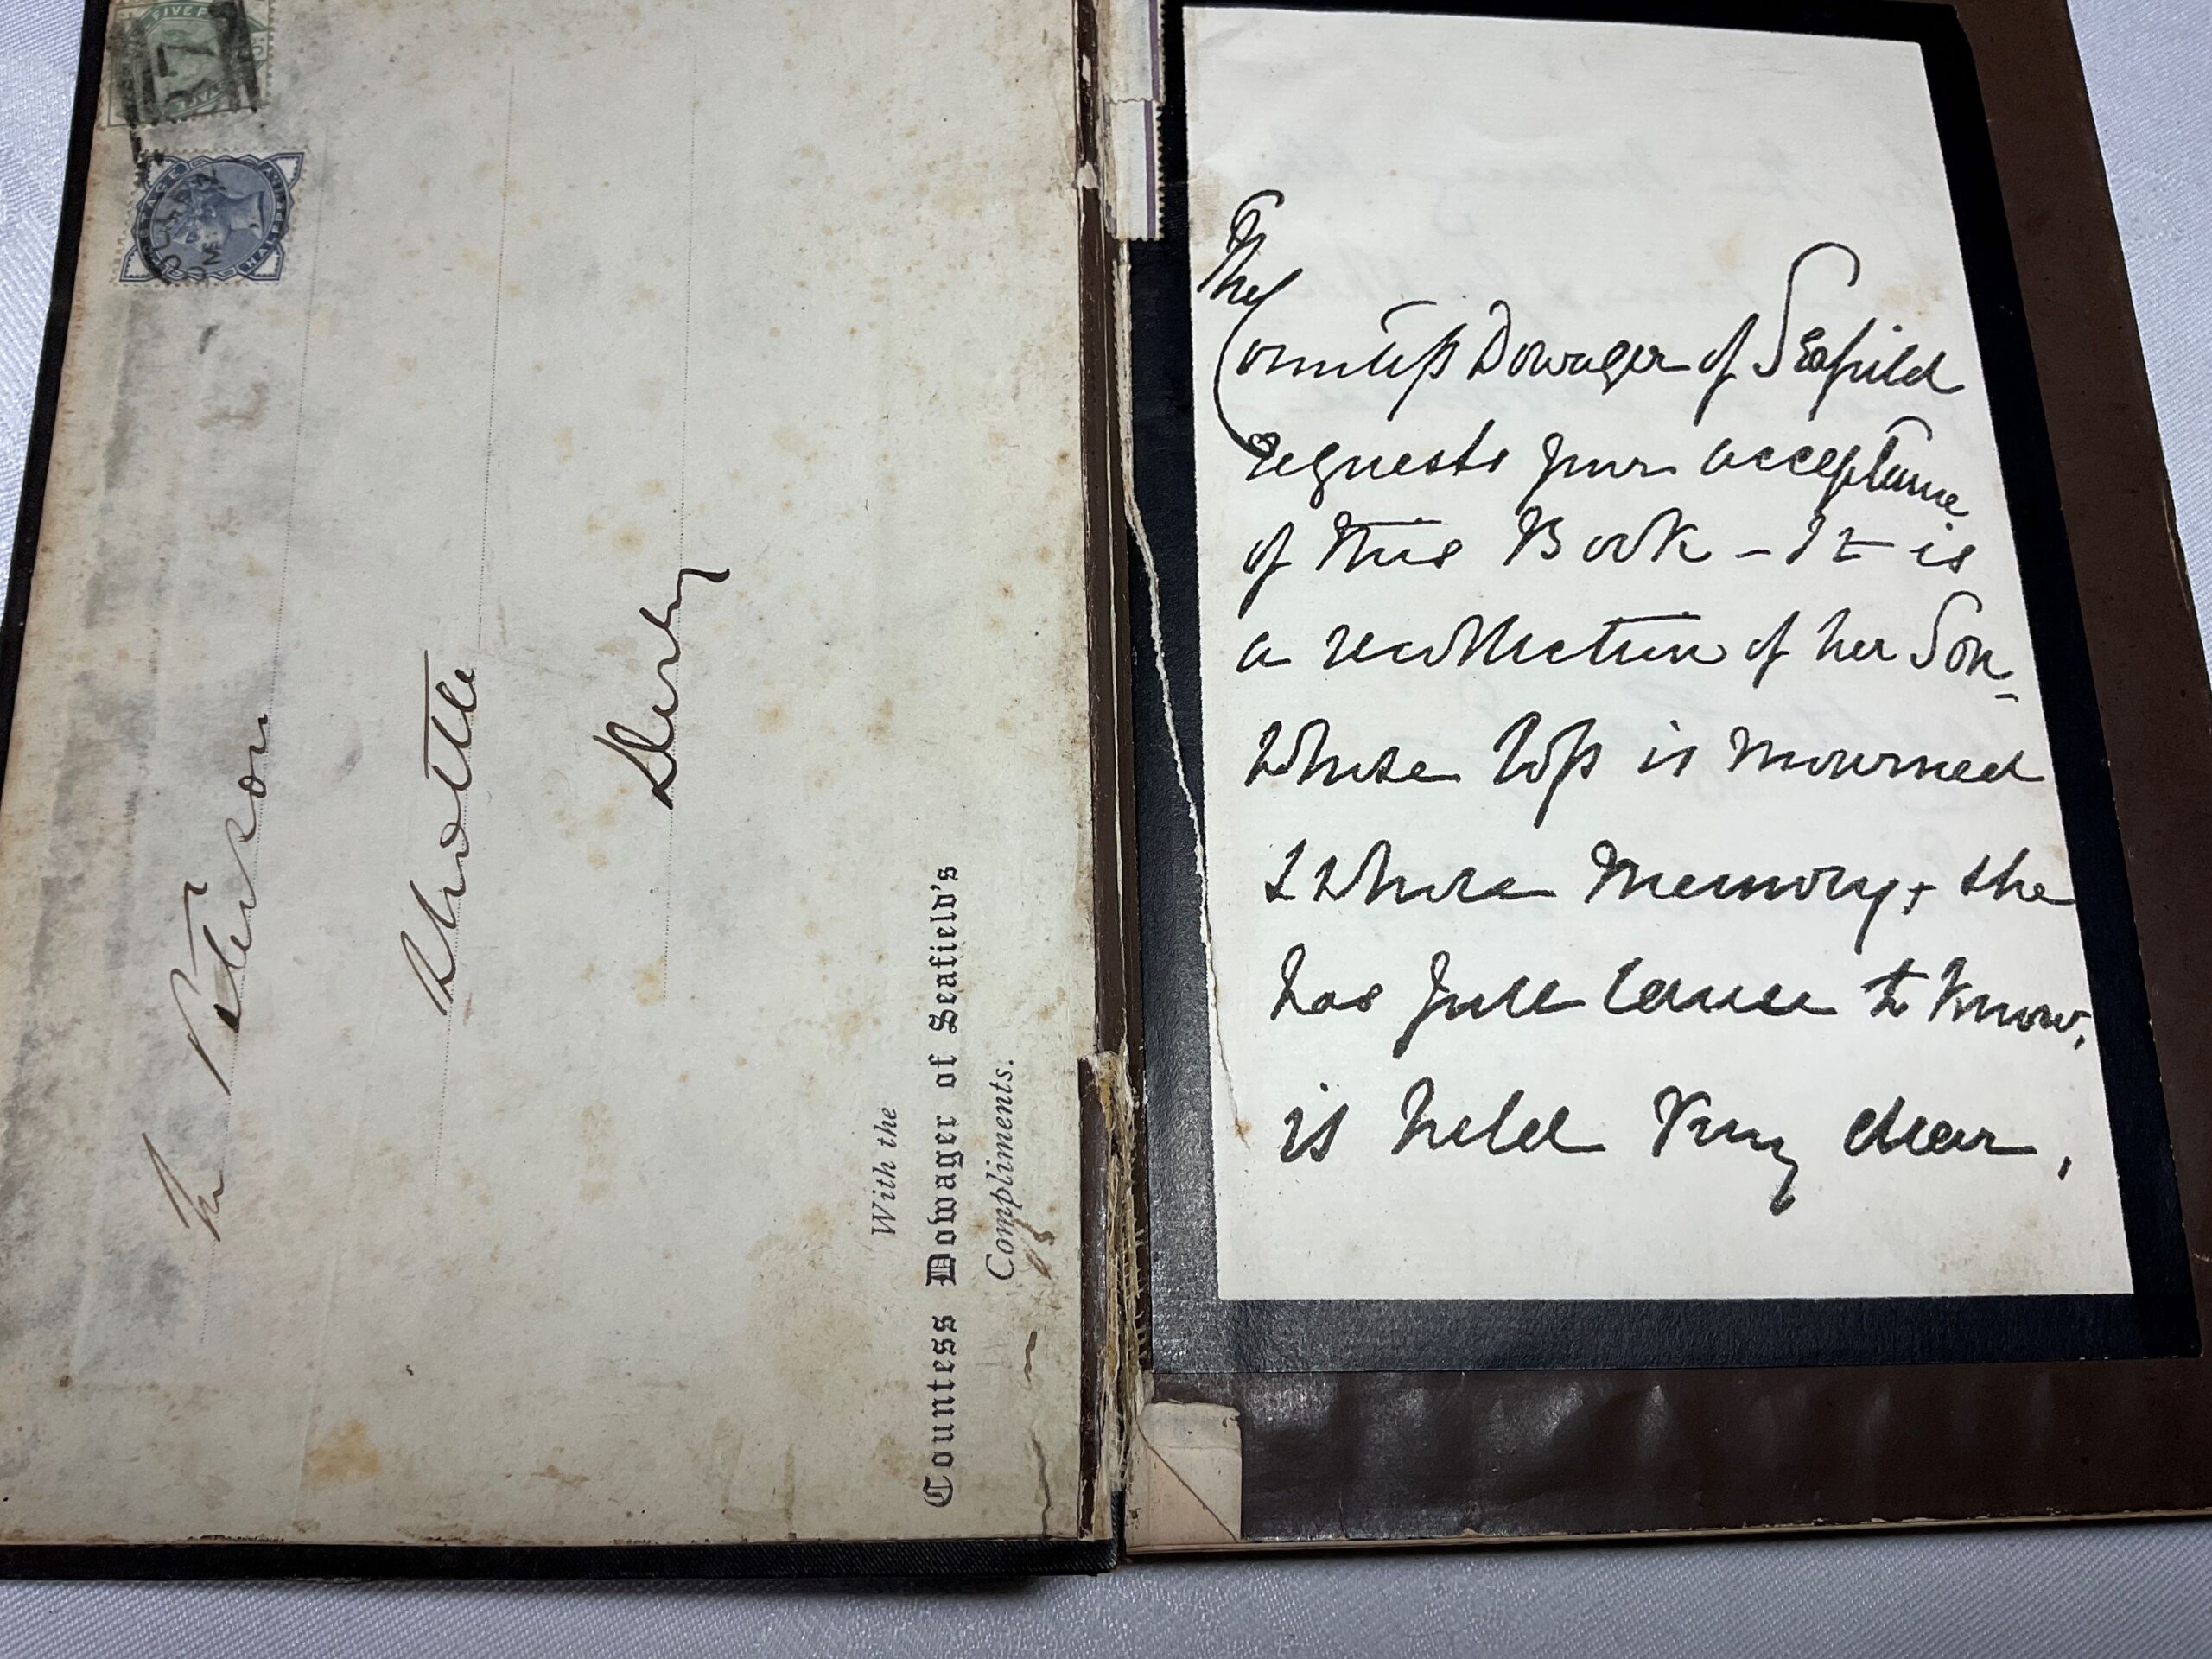 Mr Paterson
Derby
With the
Countess Dowager of Seafield's
Compliments.
FIVE P
HALFPE
The
Countess Dowager of Seafield
requests your acceptance
of this Book - It is
a recollection of her Son -
Whose loss is mourned
& Whose Memory, she
has full cause to know,
is held very dear,